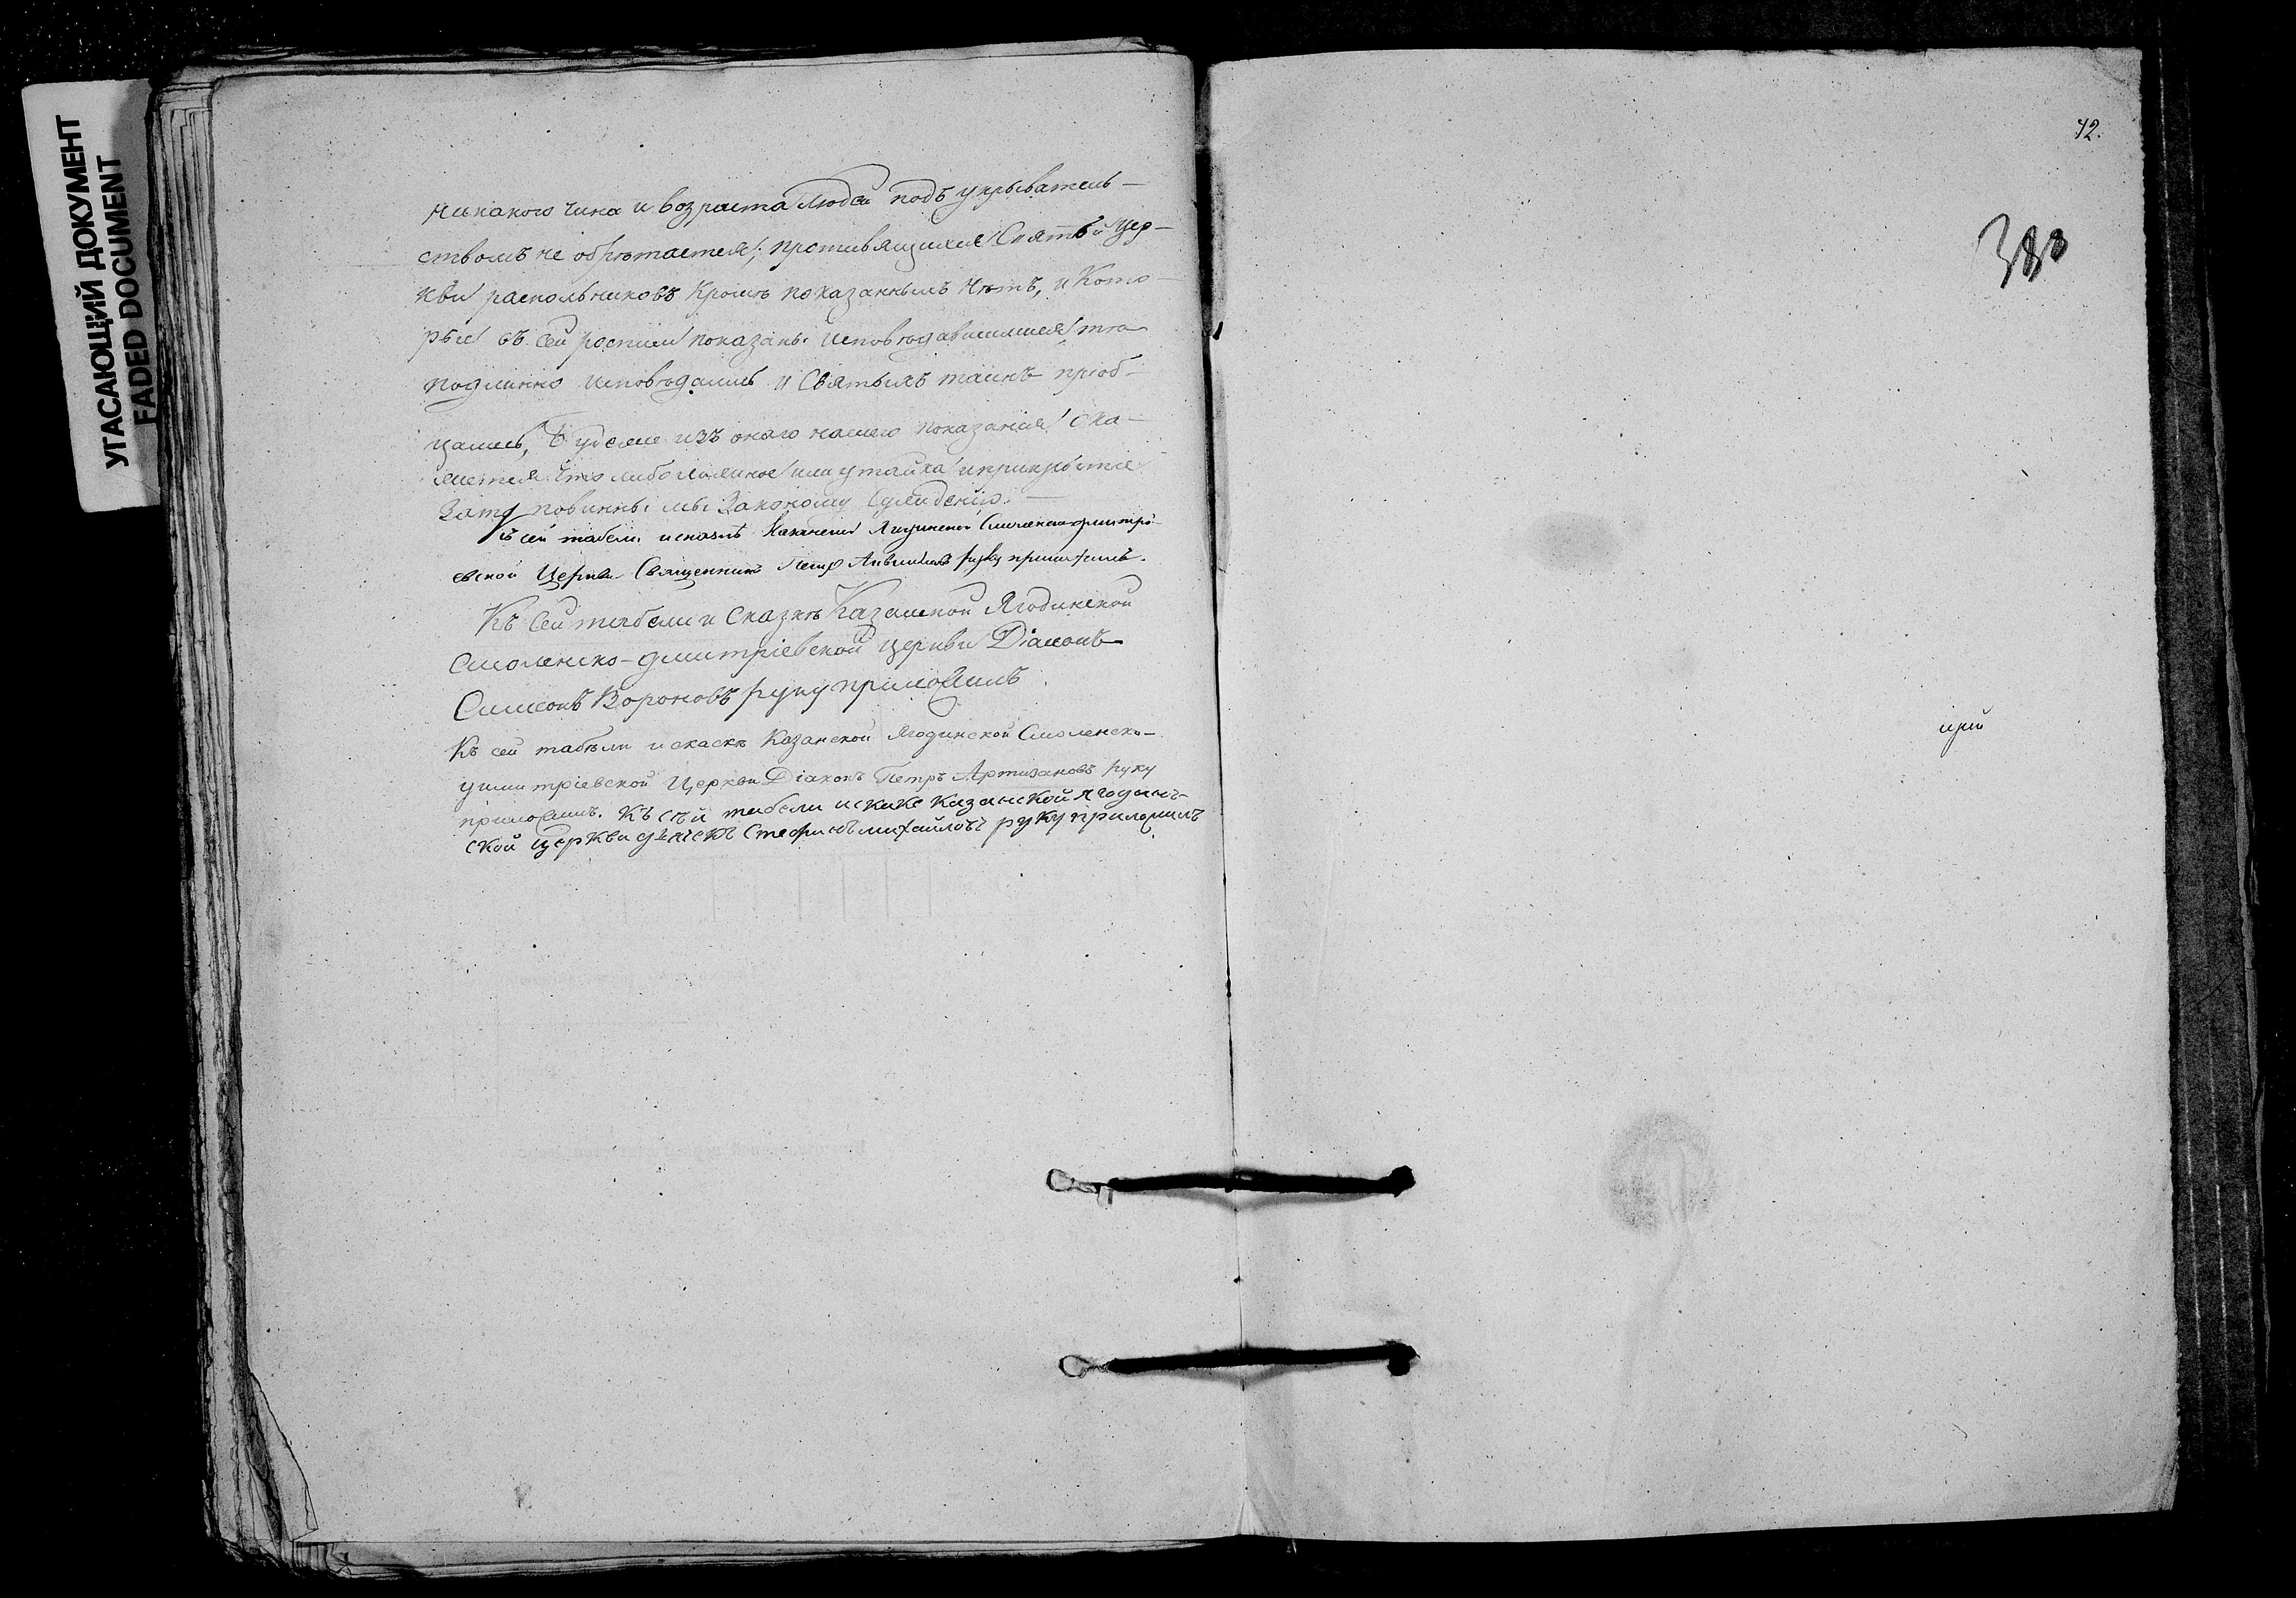 УГАСАЮЩИЙ ДОКУМЕНТ
FADED DOCUMENT
никакого чина и возраста людей подъ укрыватель-
ствомъ не обрѣтается; противящихся Святѣй Цер-
кви раскольниковъ кромѣ показанныхъ нѣтъ, и Кото-
рые въ сей росписи показаны исповѣдавшимися тѣ
подлинно исповѣдались и Святыхъ таинъ пріоб-
щались, Будеже изъ онаго нашего показанія ока-
жется что либо ложное или утайка и прикрытіе
Зато повинны мы Законому Сужденію.
Къ сей табели и сказкѣ Казанской Ягодинской Смоленскодмитрі-
евской Церкви Священникъ Петръ руку приложилъ.
Къ Сей табели и Сказкѣ Казанской Ягодинской
Смоленско-дмитріевской церкви Діаконъ
Симеонъ Вороновъ руку приложилъ.
Къ сей табѣли и скаскѣ Казанской Ягодинской Смоленско-
димитріевской Церкви Діаконъ Петръ Артизановъ руку
приложилъ. Къ сѣй табели искаке казанской ягодинъ-
ской Церкви дьячекъ Стефанъ михайловъ руку приложилъ
42.
380